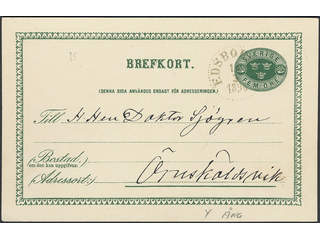 BREFKORT.
(DENNA SIDA ANVÄNDES ENDAST FÖR ADRESSERINGEN.)
SVERIGE
FEM ÖRE
EDSBO
Till H Herr Doktor Sjögren
(Bostad:)
(om den kan uppgifvas)
(Adressort:) Örnsköldsvik
Y ÅNG